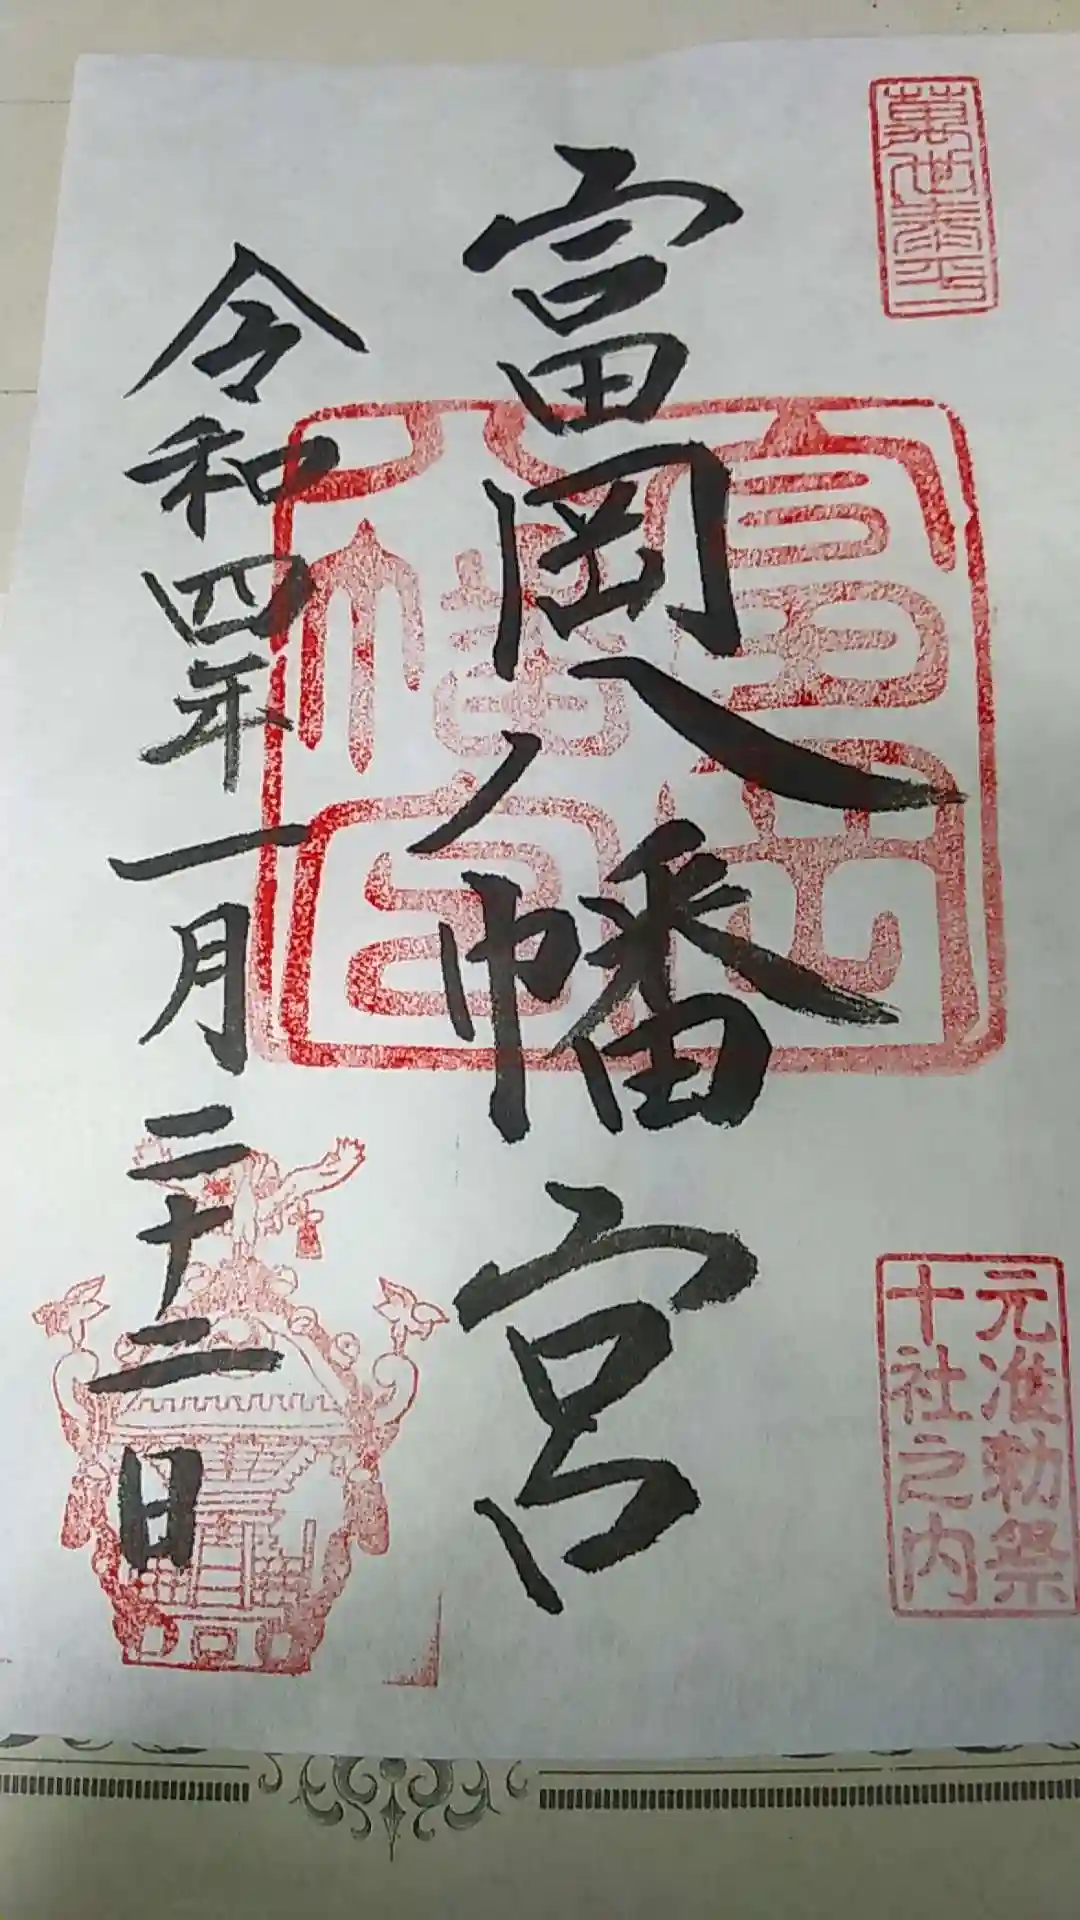 萬世泰平
元准勅祭
十社之内
富岡八幡宮
富岡
八幡宮
令和四年一月二十二日